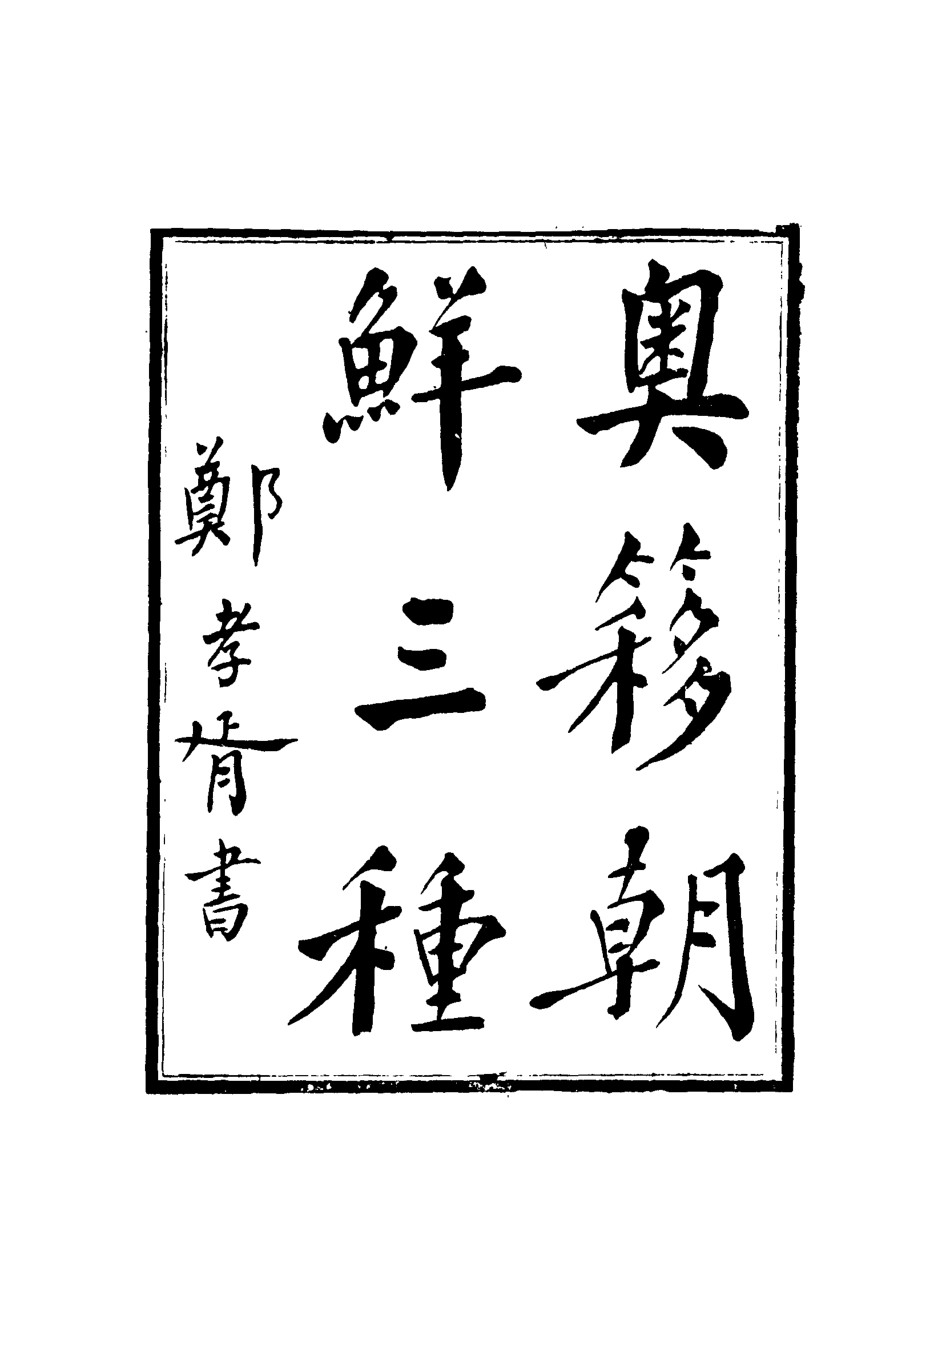 奧簃朝
鮮三種
鄭孝胥書